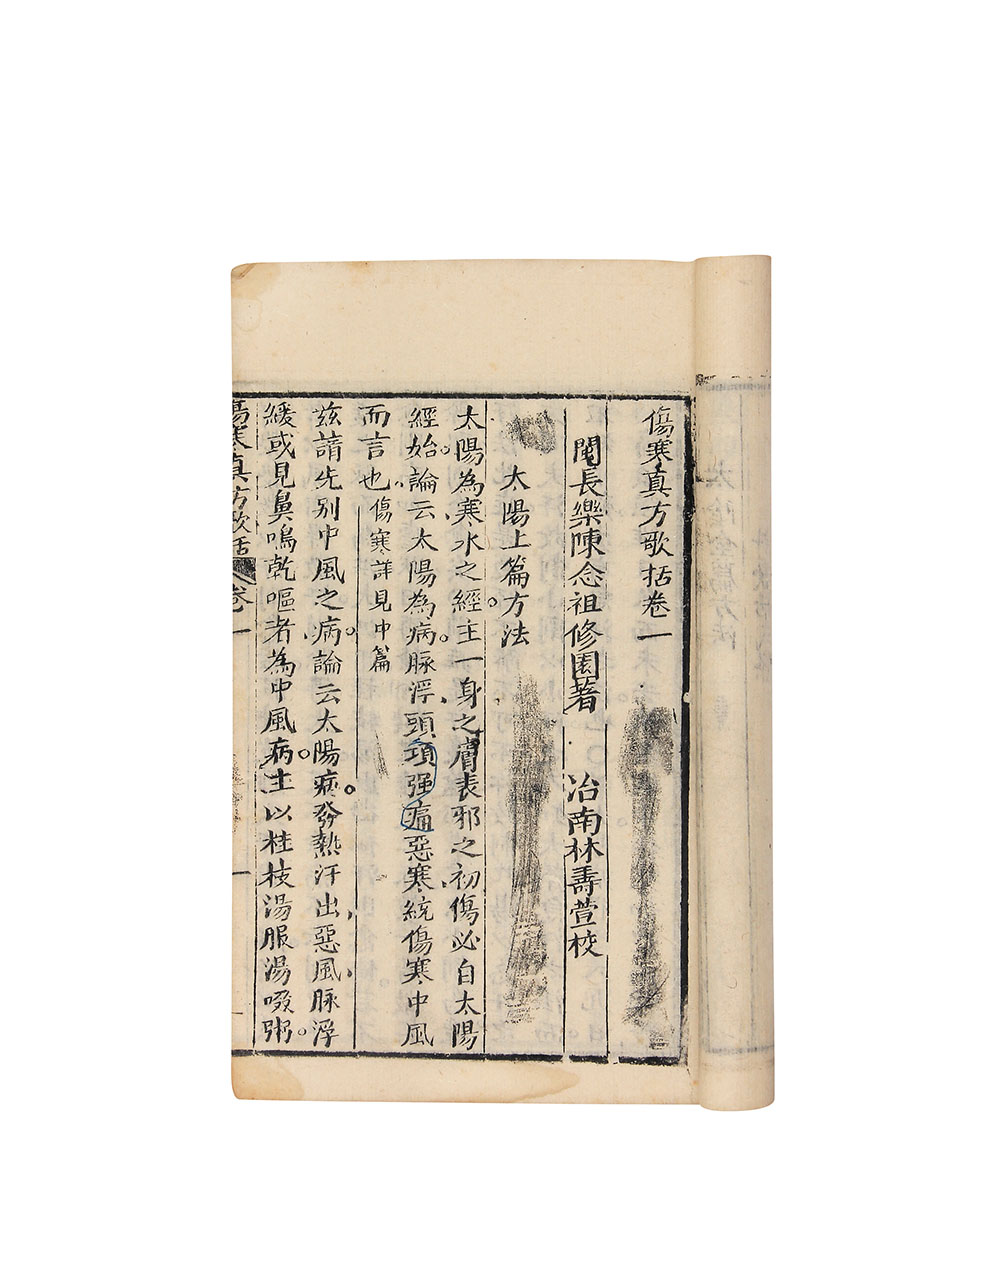 傷寒真方歌括卷一
閩長樂陳念祖修園著 冶南林壽萱校
太陽上篇方法
太陽為寒水之經。主一身之膚表。邪之初傷必自太陽
經始。論云太陽為病。脉浮、頭項强痛、惡寒、統傷寒中風
而言也。傷寒詳見中篇
玆請先別中風之病。論云太陽病。發熱汗出、惡風、脉浮
緩或見鼻鳴乾嘔者為中風病。主以桂枝湯服湯啜粥。
傷寒真方歌括 卷一 一